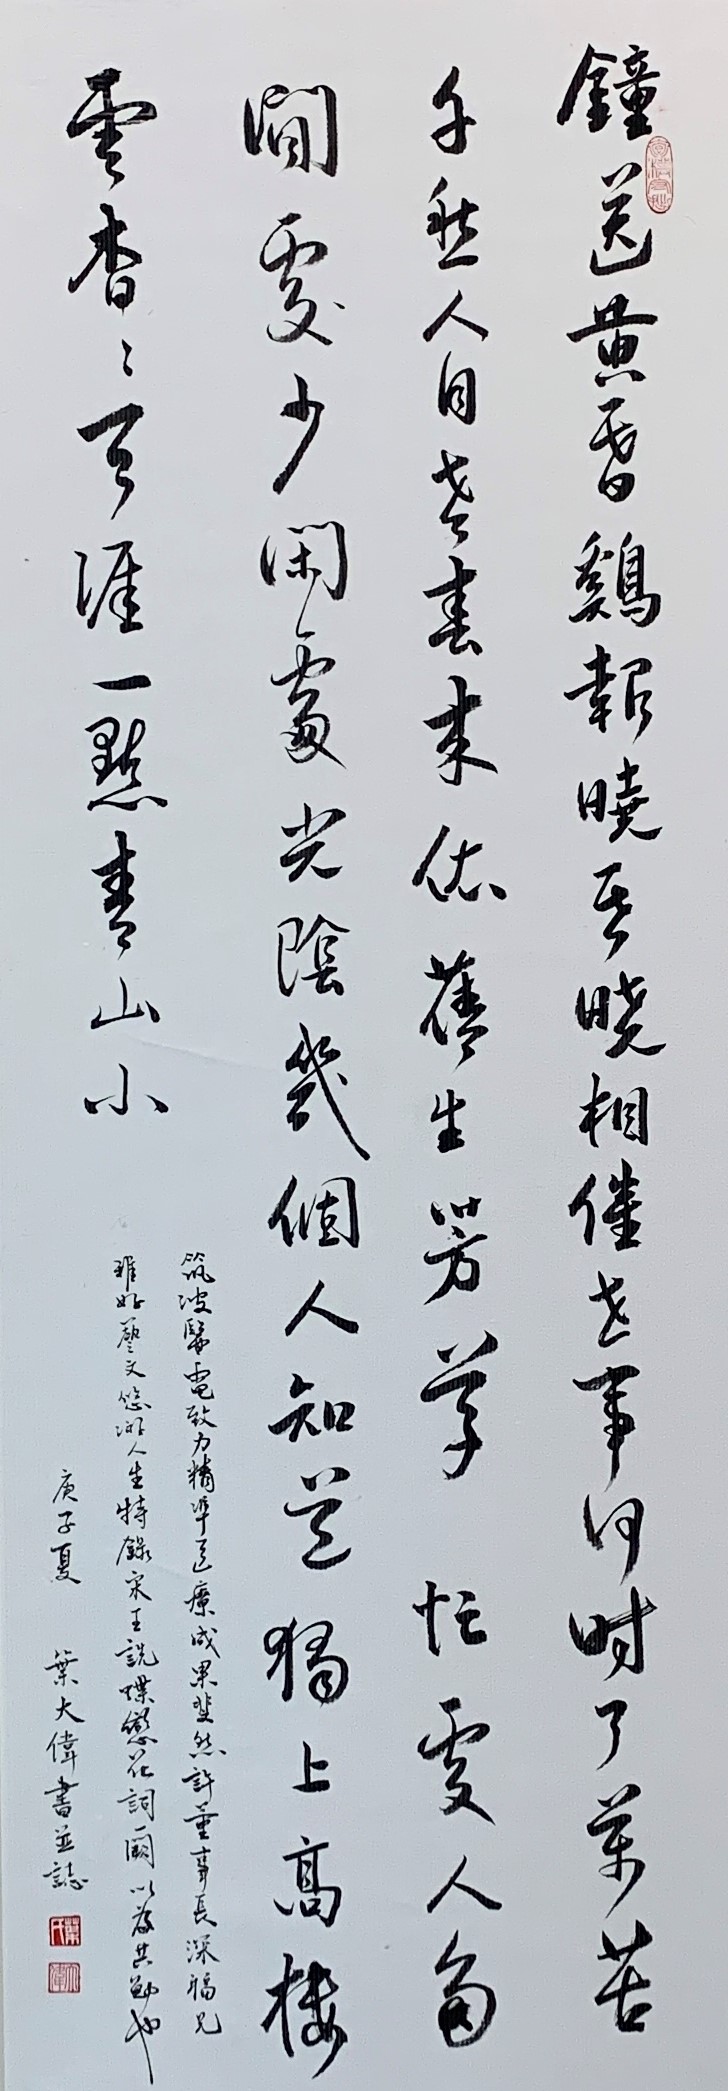 鐘送黃昏鷄報曉昏曉相催世事何時了萬苦
千愁人自老春來依舊生芳草 忙處人多
閒處少閑處光陰幾個人知道獨上高樓
雲杳々天涯一點青山小
筑波醫電致力精準醫療成果斐然許董事長深福兄
雅好藝文悠游人生特錄宋王詵蝶戀花詞闋以為共勉也
庚子夏 葉大偉書並誌